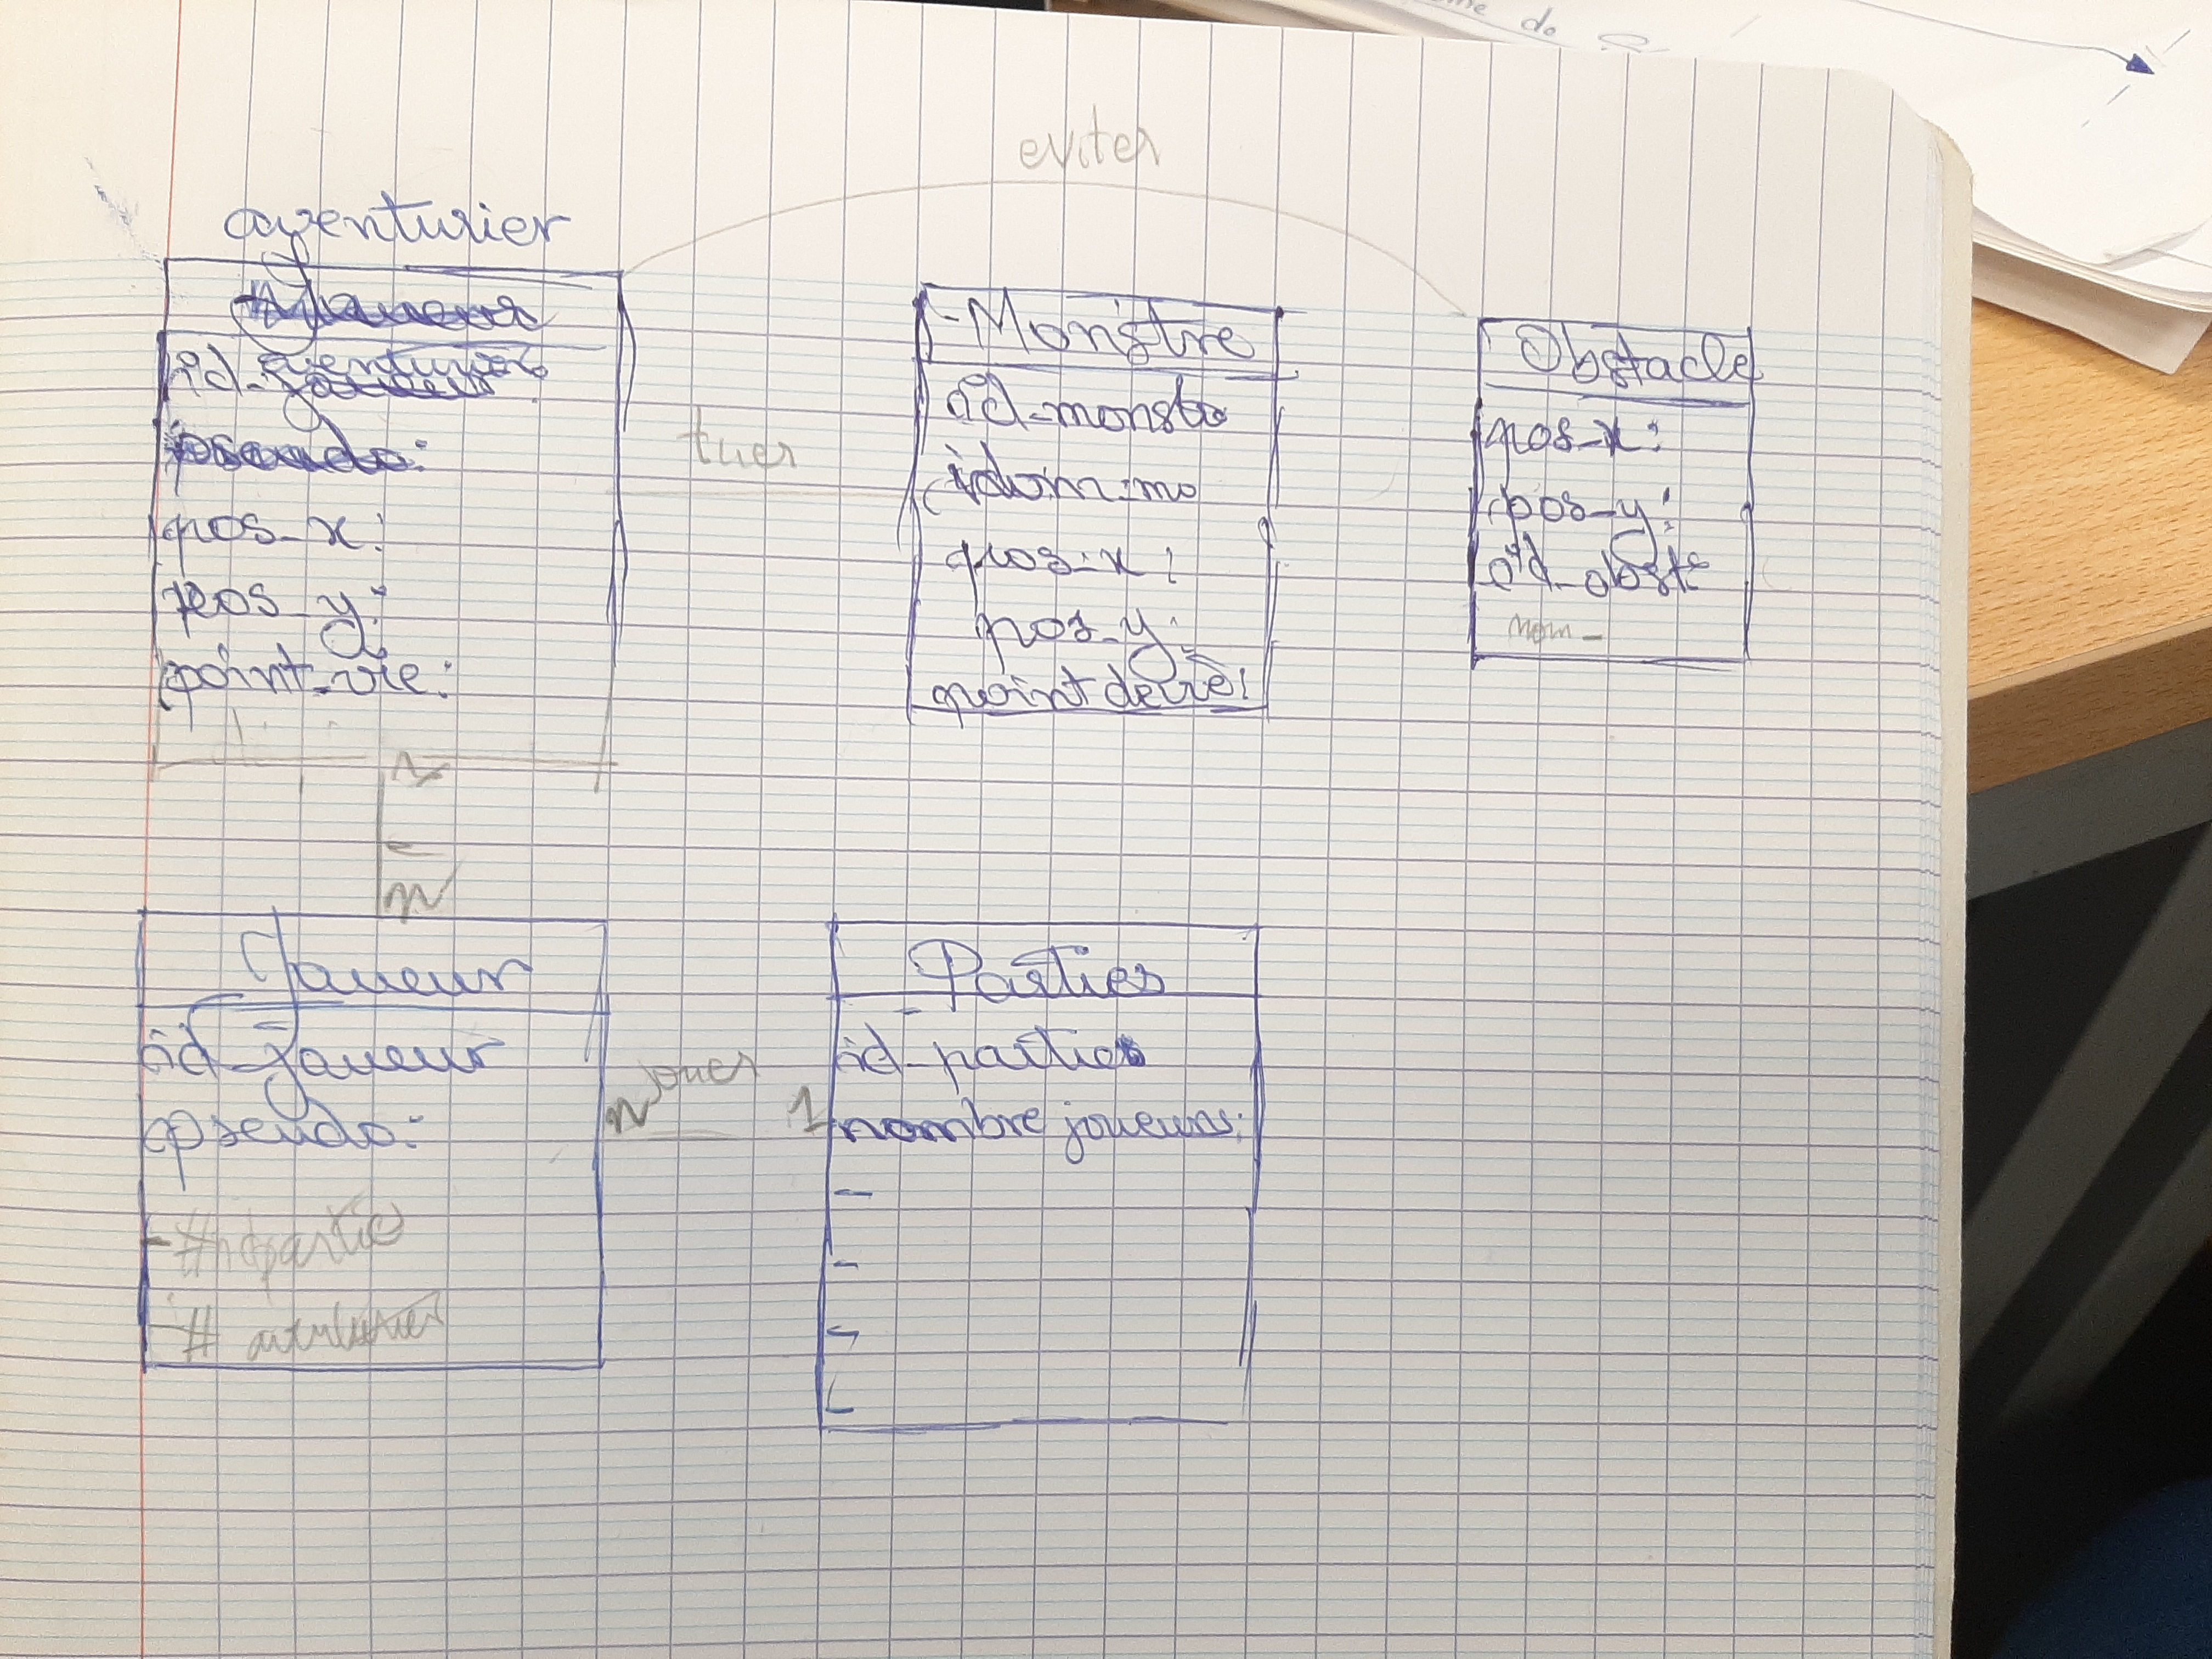 do
eviter
aventurier
id_aventurier
pos_x:
pos_y:
point_vie:
tuer
-Monstre
id_monstre
pos_x:
pos_y:
point de vie:
Obstacle
pos_x:
pos_y:
id_obste
nom_
n
n
Joueur
id_joueur
pseudo:
-#idpartie
-# aventurier
n jouer 1
Parties
id_parties
nombre joueurs:
-
-
-
-